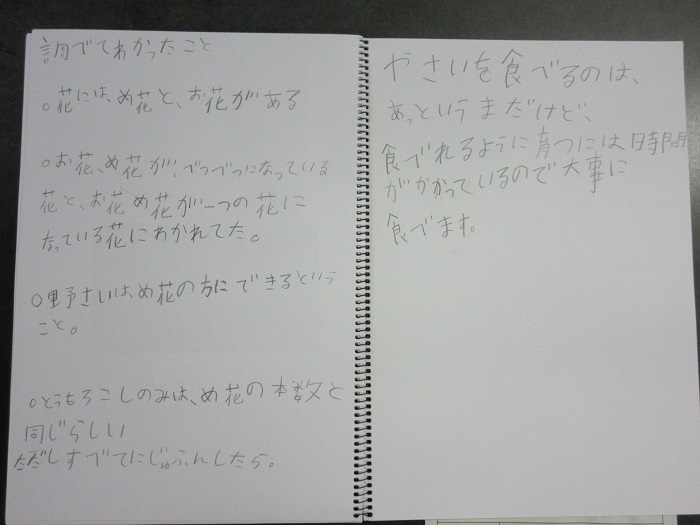 調べてわかったこと
○花には、め花と、お花がある
○お花、め花が、べつべつになっている
花と、お花め花が一つの花に
なっている花にわかれてた。
○野さいは、め花の方にできるという
こと。
○とうもろこしのみは、め花の本数と
同じらしい
ただしすべてにじゅふんしたら。
やさいを食べるのは、
あっというまだけど、
食べれるように育つには時間
がかかっているので大事に
食べます。